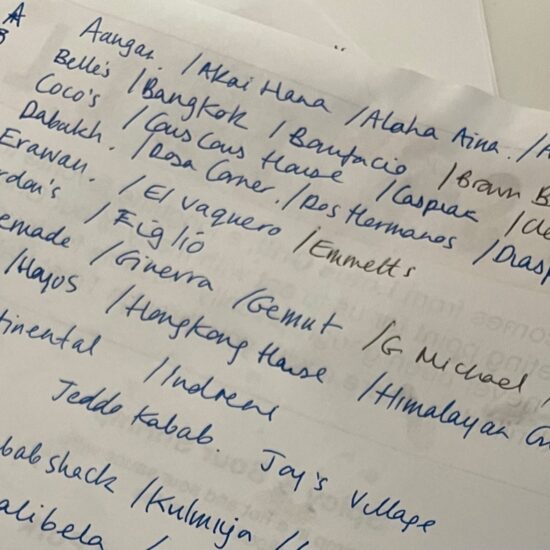 A Aangan. / Akai Hana / Aloha Aina. / A
B Belle's / Bangkok / Bonifacio / Brown B
Coco's / Cous Cous House / Caspian / Cle
Dabakh. / Dosa Corner. / Dos Hermanos / Diasp
Erawan. / El vaquero / Emmetts
rdon's / Figlio
emade / Ginevra / Gemut / G Michael /
/ Hajos / Hongkong House / Himalayan Gr
tinental / Indrene
Jeddo Kabab. Joy's Village
babshack / Kulmiya /
alibela /